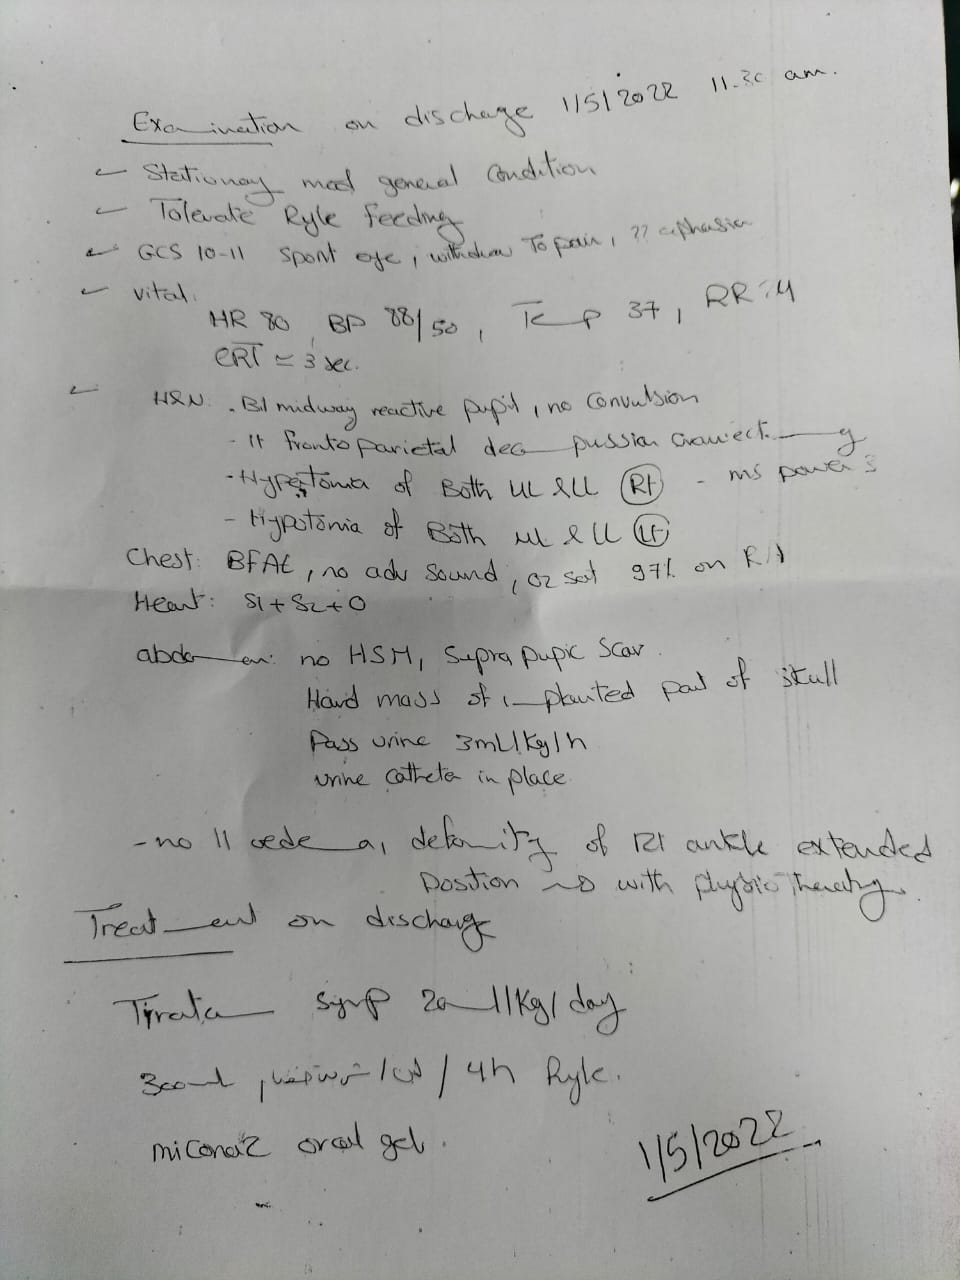 Examination on discharge 1/5/2022 11.30 am.
Stationary mod general condition
Tolerate Ryle feeding
GCS 10-11 spont eye, withdraw To pain, ?? aphasia
vital:
HR 80 BP 88/50, Temp 37, RR 24
CRT = 3 sec.
H&N: . Bil midway reactive pupil, no convulsion
- lt frontoparietal decompression craniectomy
- Hypertonia of Both UL & LL (Rt) - ms power 3
- Hypotonia of Both UL & LL (Lt)
Chest: BEAE, no adv sound, O2 sat 97% on R/A
Heart: S1 + S2 + 0
abdomen: no HSM, Supra pupic scar.
Hard mass of implanted part of skull
Pass urine 3mL/kg/h
urine catheter in place.
- no ll oedema, deformity of Rt ankle extended
position → with physiotherapy.
Treatment on discharge
syrup 20ml/kg/day
300ml / 4h Ryle.
miconaz oral gel.
1/5/2022